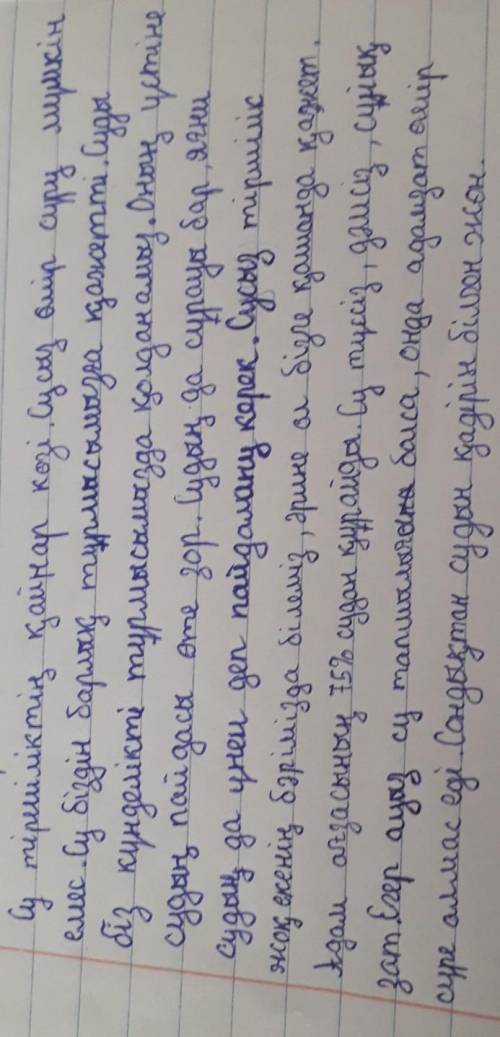 Су тіршіліктің қайнар көзі. Сусыз өмір сүру мүмкін
емес. Су біздің барлық тұрмысымызға қажетті. Суды
біз күнделікті тұрмысымызда қолданамыз. Оның үстіне
судың пайдасы өте зор. Судың да сұрауы бар, яғни
судың да үнем деп пайдалану керек. Сусыз тіршілік
жоқ екенің бәрімізда білеміз, әрине ол бізге қашанда қажет.
Адам ағзасының 75% судан құрайды. Су түссіз, дәмсіз, сұйық
зат. Егер ауыз су тапшылығына болса, онда адамзат өмір
сүре алмас еді. Сондықтан судың қадірін білген жөн.